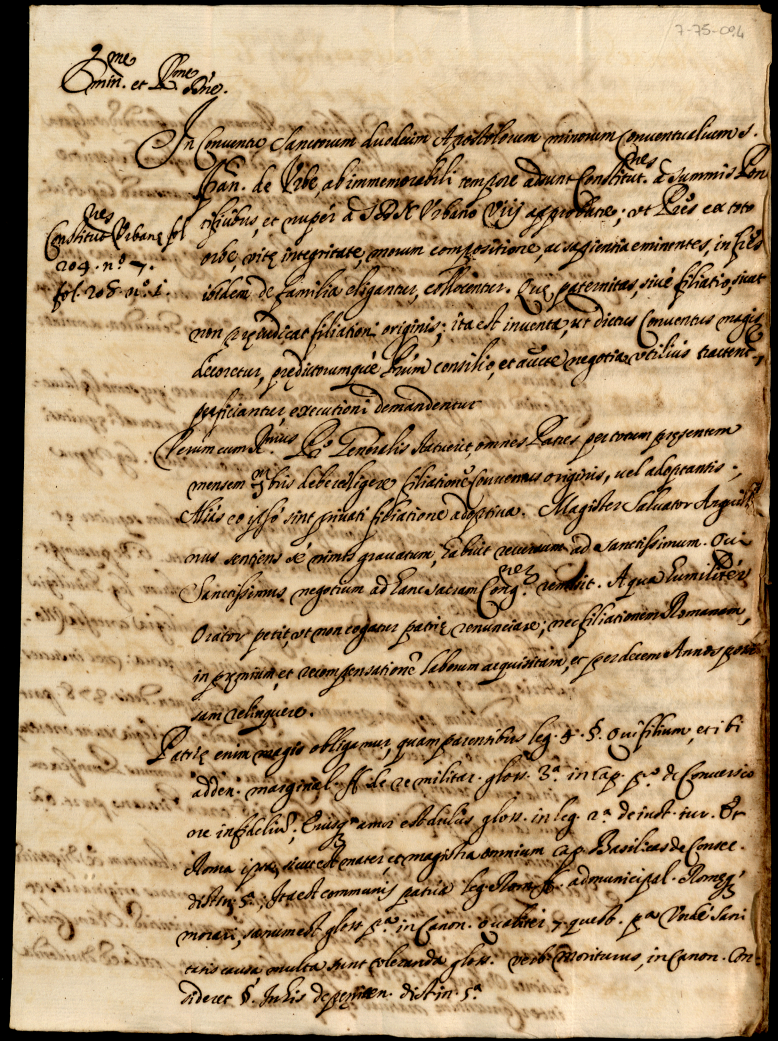 7-75-094
Emin.me et R.me Dñe.
In Conventu Sanctorum duodecim Apostolorum minorum Conventualium S.
Fran. de Urbe, ab immemorabili tempore adsunt Constitut.nes a summis Pon
tificibus, et nuper a S.D.N. Urbano Viij approbatę; ut Pr̃es ex toto
Constitut.nes Urbanę fol
204. nº 7.
fol. 208. nº 1.
orbe, vitę integritate, morum compositione, ac sapientia eminentes, in Pr̃es
ibidem de familia eligantur, collocentur. Quę paternitas, sive filiatio, sicut
non pręiudicat filiationi originis; ita est inventa, ut dictus Conventus magis
decoretur, prędictorumque Pr̃um consilio, et auctę negotia utilius tractent,
perficiantur, executioni demandentur
Verum cum R.mus Pr̃. Generalis statuerit, omnes Patres per totum pręsentem
mensem bris debere eligere filiationẽ Conventus originis, vel adoptantis;
Alias eo ipso sint privati filiatione adoptiva. Magister Salvator
nus sentiens se nimis gravatum, habuit recursum ad Sanctissimum. Qui
Sanctissimus negotium ad hanc sacram Cong.nem remisit. A qua humiliter
Orator petit, ut non cogatur patrię renunciare, nec filiationem Romanam,
in pręmium, et recompensationẽ laborum acquisitam, et per decem Annos posses
sam relinquere.
Patrię enim magis obligamur, quam parentibus leg. 4. §. Qui filium, et ibi
adden. marginal. ff. de re militar. gloss. 3ª in cap. pº de Conversio
ne infideliũ; Eiusq. amor est dulcis gloss. in leg. 2ª de iust. iur. Et
Roma ipsa, sicut est mater, et magistra omnium cap. Basilicas de Consec.
distin. 5.; Ita est communis patria leg. Roma ff. ad municipal. Romęq.
morari, sanum est gloss. pª in Canon. qualiter 7. quest. pª Unde Sani
tatis causa multa sunt toleranda gloss. verb. moriturus, in Canon. Con
sideret §. In his de pęniten. distin. 5ª